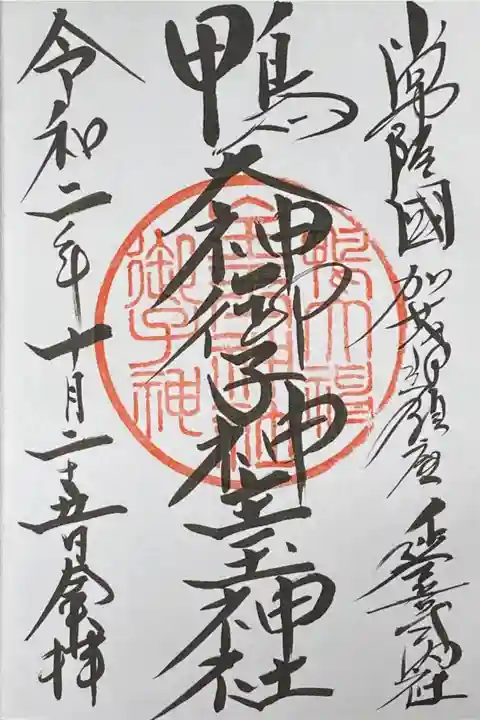 常陸國 加茂部鎮座 延喜式内社
鴨大神御子神主玉神社
令和二年十月二十五日奉拝
鴨大神
御子神
主玉神社